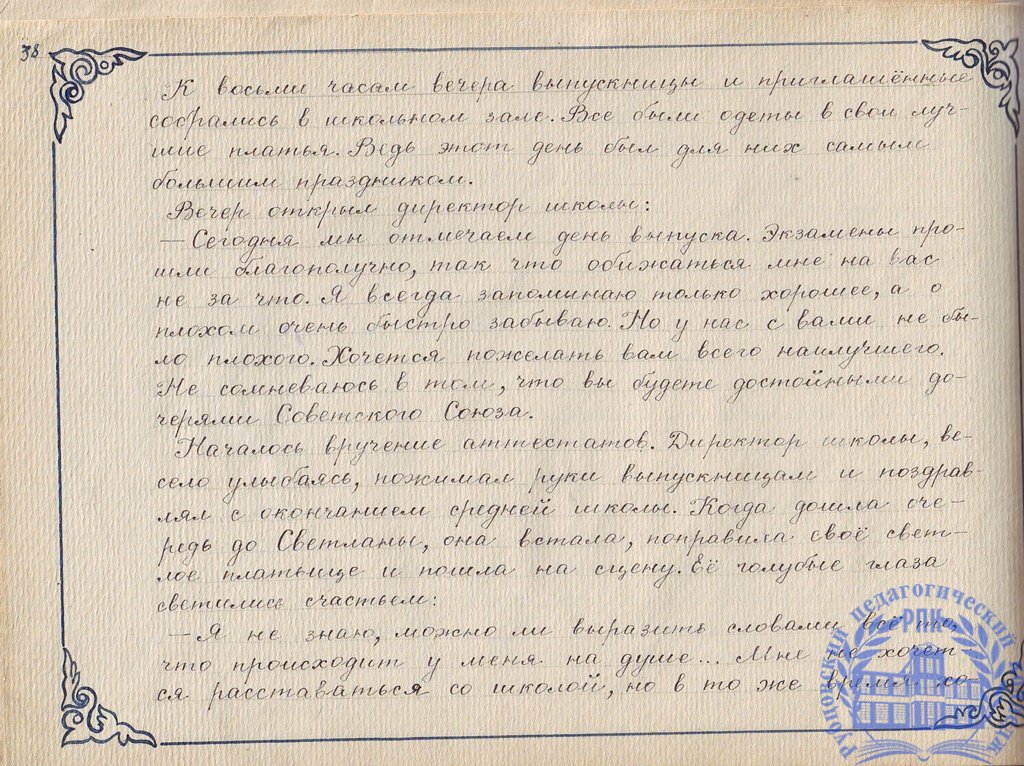 38
К восьми часам вечера выпускницы и приглашённые
собрались в школьном зале. Все были одеты в свои луч-
шие платья. Ведь этот день был для них самым
большим праздником.
Вечер открыл директор школы:
— Сегодня мы отмечаем день выпуска. Экзамены про-
шли благополучно, так что обижаться мне на вас
не за что. Я всегда запоминаю только хорошее, а о
плохом очень быстро забываю. Но у нас с вами не бы-
ло плохого. Хочется пожелать вам всего наилучшего.
Не сомневаюсь в том, что вы будете достойными до-
черями Советского Союза.
Началось вручение аттестатов. Директор школы, ве-
село улыбаясь, пожимал руки выпускницам и поздрав-
лял с окончанием средней школы. Когда дошла оче-
редь до Светланы, она встала, поправила своё свет-
лое платьице и пошла на сцену. Её голубые глаза
светились счастьем:
— Я не знаю, можно ли выразить словами всё то,
что происходит у меня на душе... Мне не хочет-
ся расставаться со школой, но в то же время хо-
Рубцовский педагогический колледж
РПК